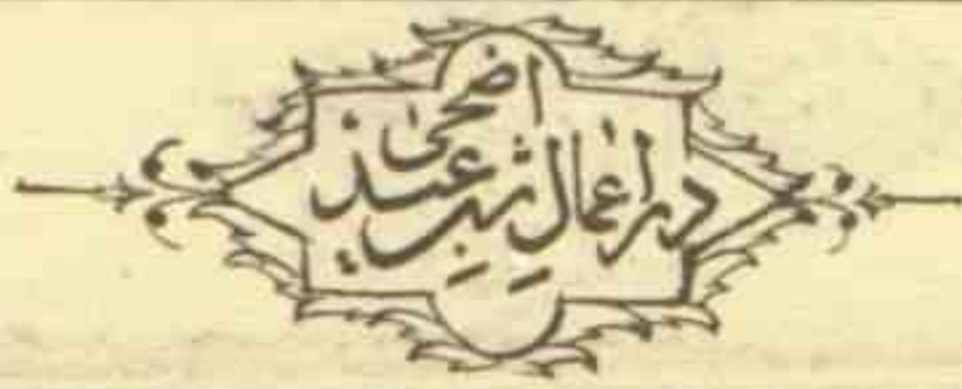 در اعمالِ شبِ عید اضحیٰ